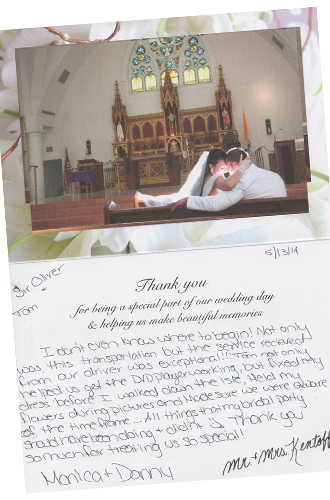 5/13/14
Sir Oliver
Tom
Thank you
for being a special part of our wedding day
& helping us make beautiful memories
I don't even know where to begin! Not only
was this transportation but the service recieved
from our driver was exceptional!!! Tom not only
helped us get the DVD player working, but fixed my
dress before I walked down the isle, Held my
flowers during Pictures and Made sure we were aware
of the time frame... All things that my bridal party
should have been doing & didn't. Thank you
so much for treating us so special!
Monica + Danny
Mr. + Mrs.